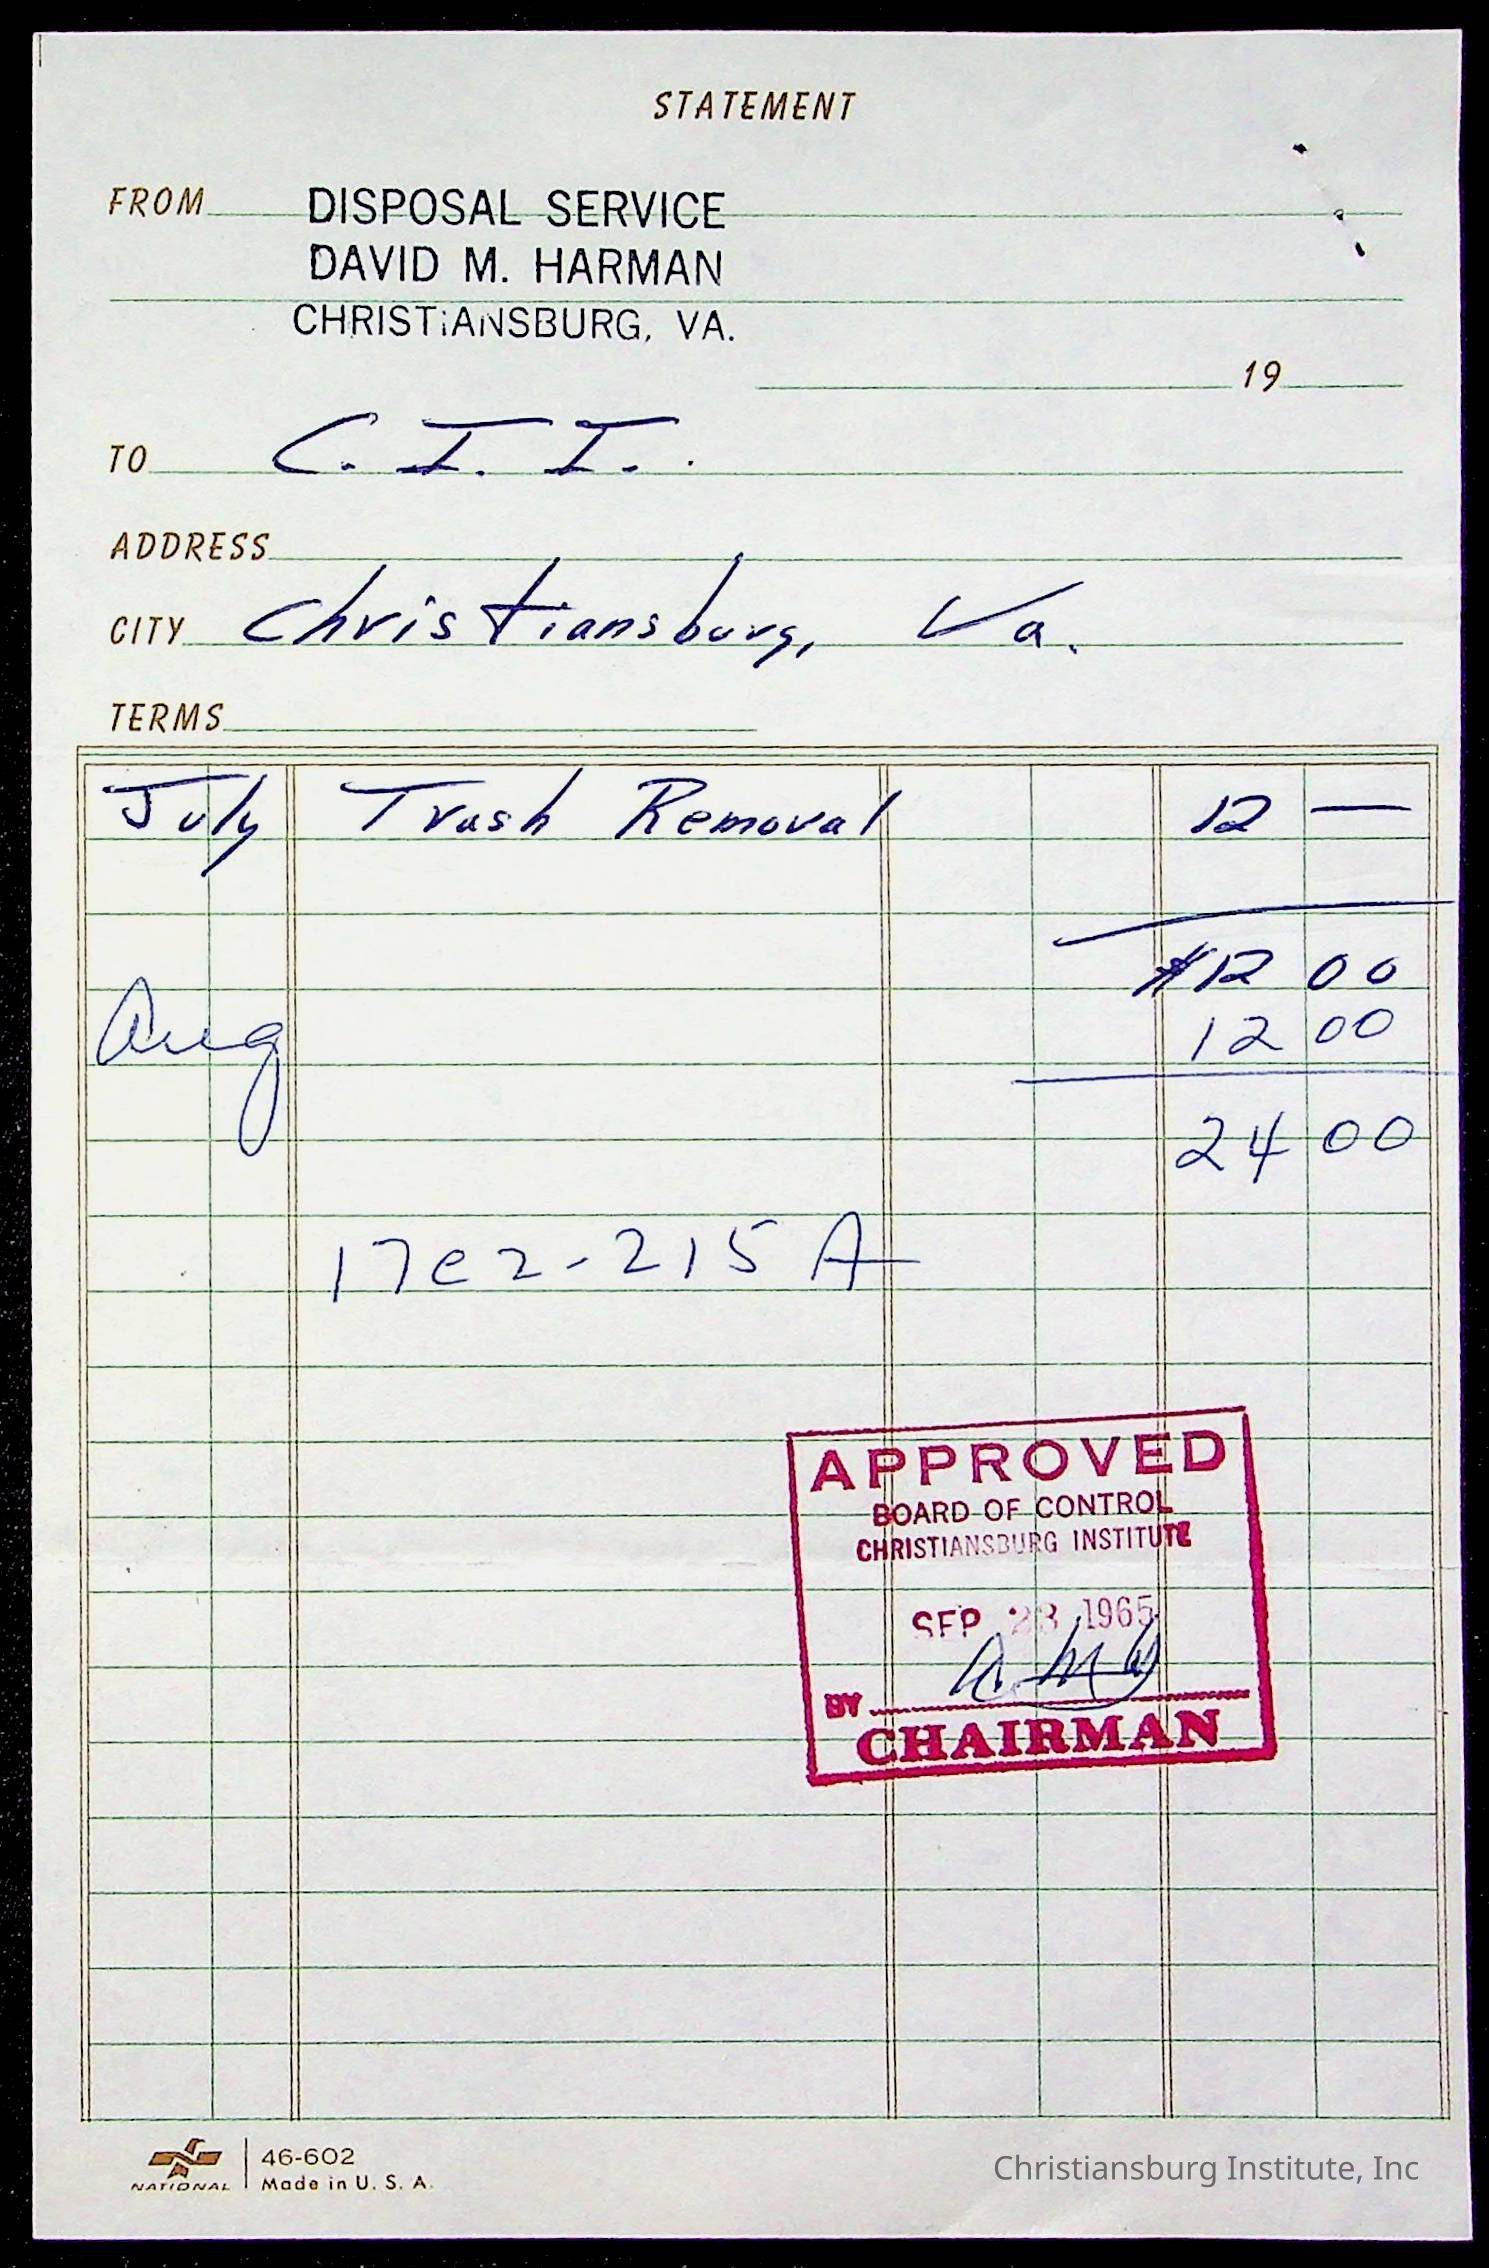 STATEMENT
FROM DISPOSAL SERVICE
DAVID M. HARMAN
CHRISTIANSBURG, VA.
19
TO C. I. I.
ADDRESS
CITY Christiansburg, Va.
TERMS
July Trash Removal 12 —
$12 00
Aug 12 00
24 00
17e2-215 A
APPROVED
BOARD OF CONTROL
CHRISTIANSBURG INSTITUTE
SEP 23 1965
BY
CHAIRMAN
NATIONAL 46-602
Made in U. S. A.
Christiansburg Institute, Inc